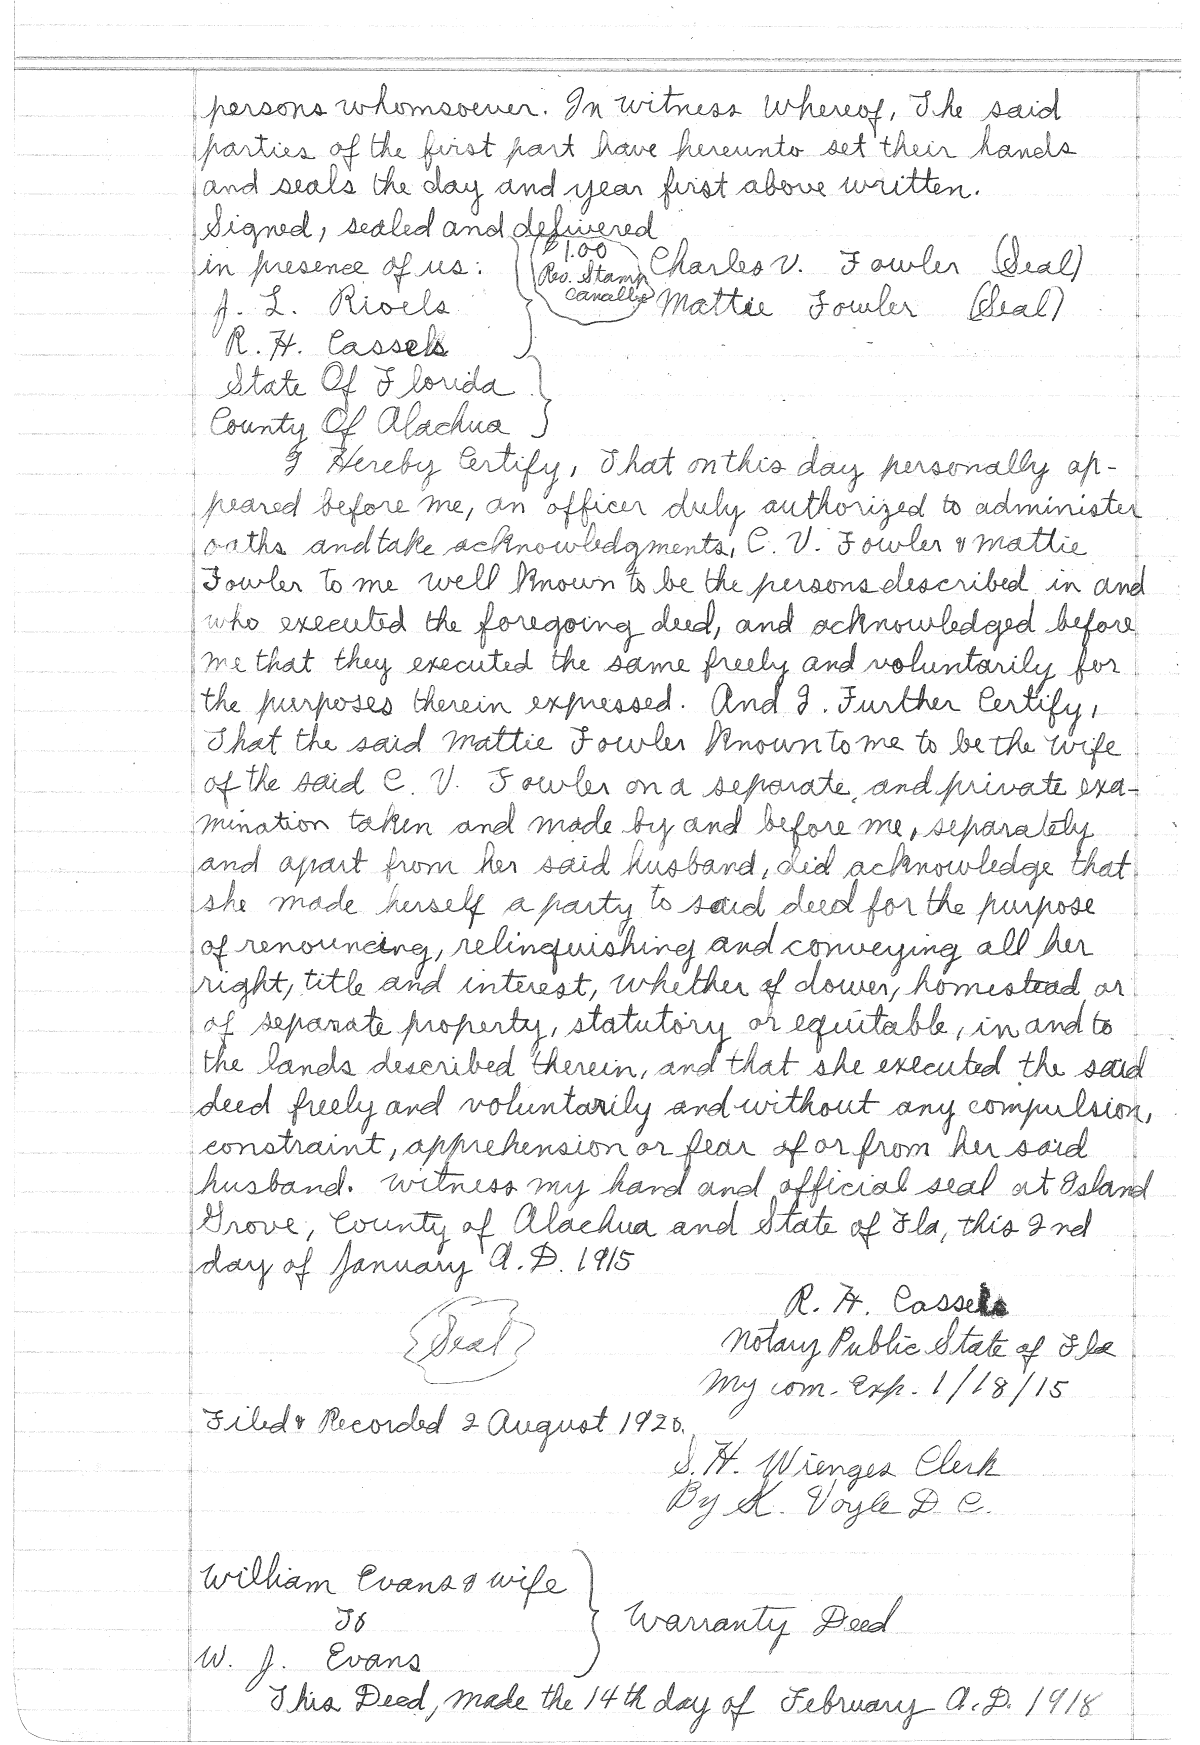 persons whomsoever. In witness Whereof, The said
parties of the first part have hereunto set their hands
and seals the day and year first above written.
Signed, sealed and delivered
in presence of us:
$1.00
Rev. Stamp
Charles V. Fowler (Seal)
Mattie Fowler (Seal)
J. L. Rivels
R. H. Cassels
State Of Florida
County Of Alachua
I Hereby Certify, That on this day personally ap-
peared before me, an officer duly authorized to administer
oaths and take acknowledgments, C. V. Fowler & Mattie
Fowler to me well known to be the persons described in and
who executed the foregoing deed, and acknowledged before
me that they executed the same freely and voluntarily for
the purposes therein expressed. And I. Further Certify,
That the said Mattie Fowler known to me to be the wife
of the said C. V. Fowler on a separate and private exa-
mination taken and made by and before me, separately
and apart from her said husband, did acknowledge that
she made herself a party to said deed for the purpose
of renouncing, relinquishing and conveying all her
right, title and interest, whether of dower, homestead or
of separate property, statutory or equitable, in and to
the lands described therein, and that she executed the said
deed freely and voluntarily and without any compulsion,
constraint, apprehension or fear of or from her said
husband. Witness my hand and official seal at Island
Grove, County of Alachua and State of Fla, this 2nd
day of January A. D. 1915
R. H. Cassels
Seal
Notary Public State of Fla
My com. Exp. 1/18/15
Filed & Recorded 2 August 1920.
S. H. Wienges Clerk
By K. Voyle D C.
William Evans & wife
To
Warranty Deed
W. J. Evans
This Deed, made the 14th day of February A. D. 1918